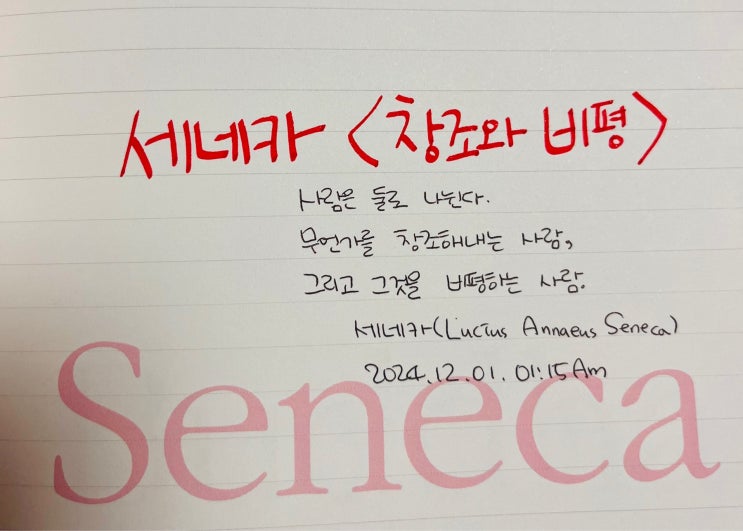 세네카 <창조와 비평>
사람은 둘로 나뉜다.
무언가를 창조해내는 사람,
그리고 그것을 비평하는 사람.
세네카(Lucius Annaeus Seneca)
2024.12.01. 01:15Am
Seneca